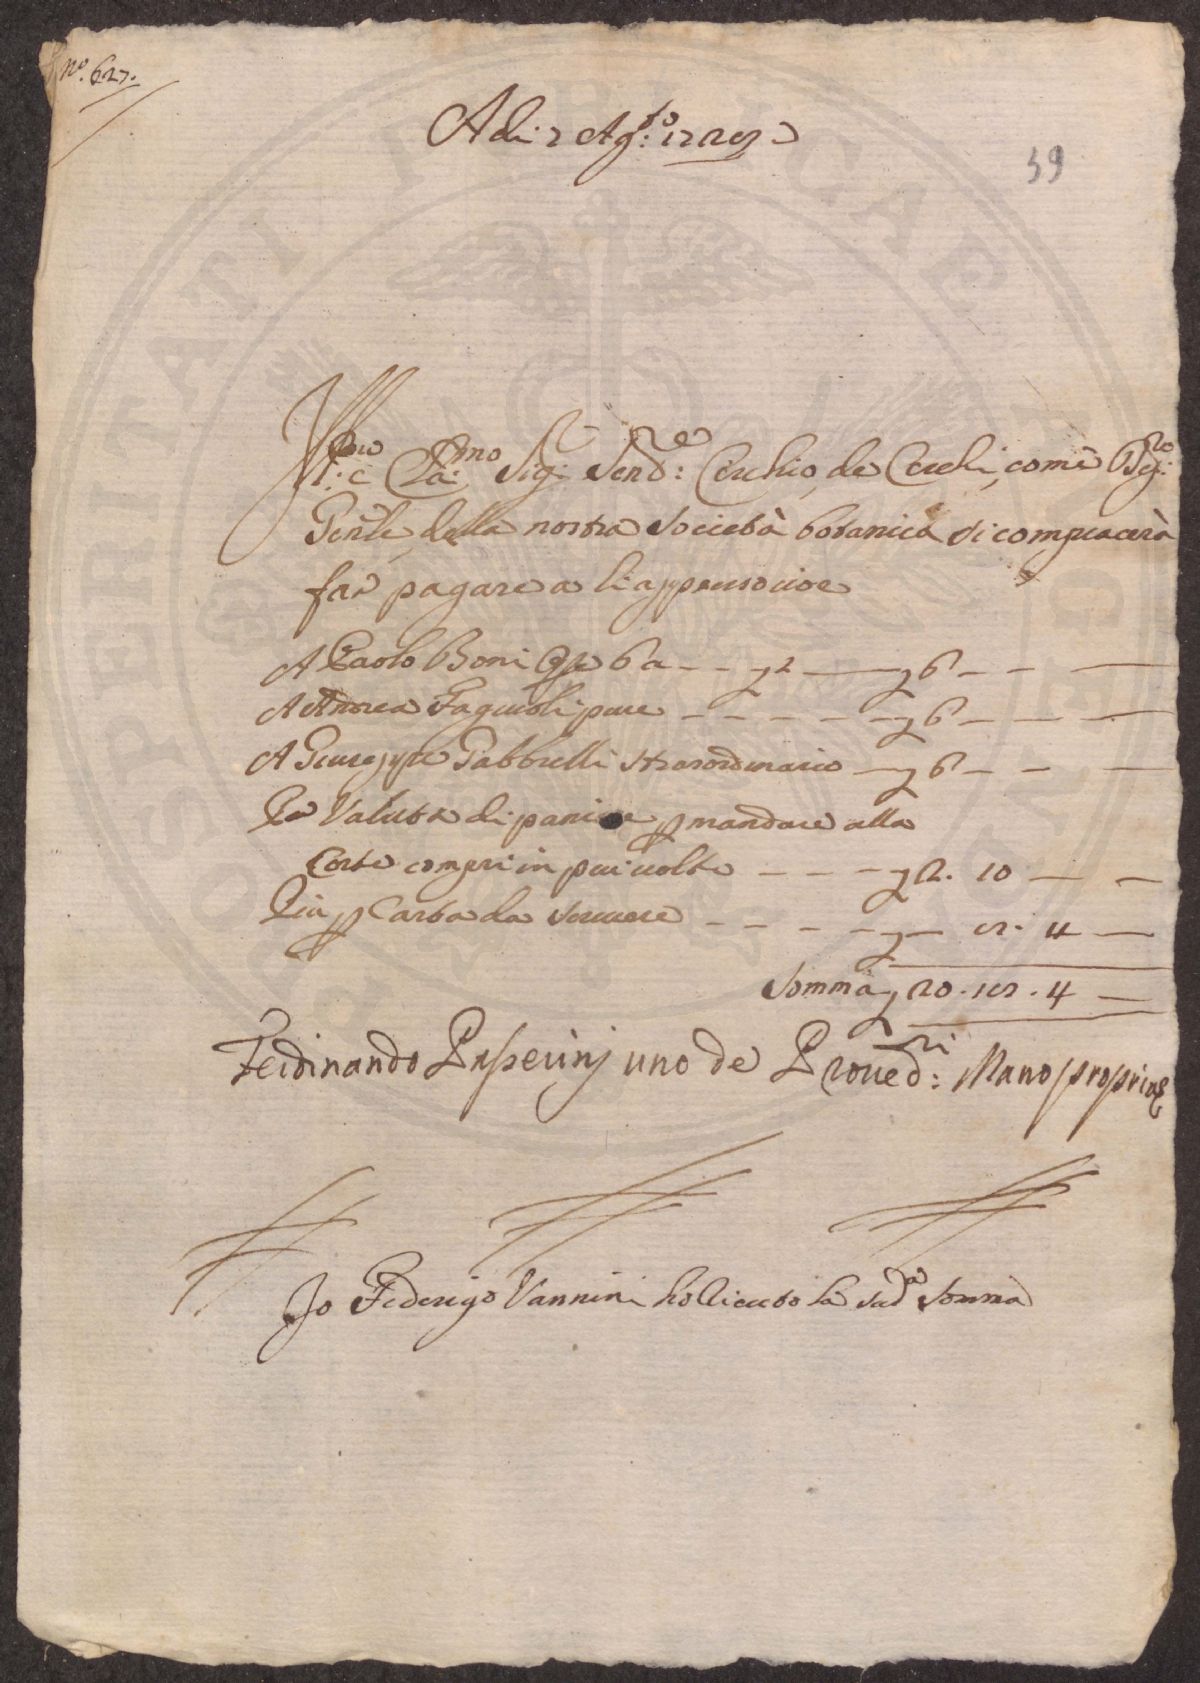 no. 627.
Adi 2 Ag:to 1725
39
Ill:mo e Cla:mo Sig: Send:e Cerchio de Cerchi, come Seg:rio
Gen:le della nostra Società botanica si compiacerà
far pagare a li appresso cioe
A Paolo Boni Op:e 6 a - - £ 1 — £ 6 - - —
A Andrea Fagiuoli pure - - - - - - £ 6 - - —
A Giuseppe Gabbrielli straordinario — £ 6 - - —
Per Valuta di paniere p mandare alla
Corte compri in piu volte - - - £ 2. 10 — —
Piu p Carta da scrivere - - - - £ — 5. 4 —
Somma £ 20. 15. 4 —
Ferdinando Passerinj uno de Proued:ri Mano propria
Jo Federigo Vannini ho riceuto la sud:a somma